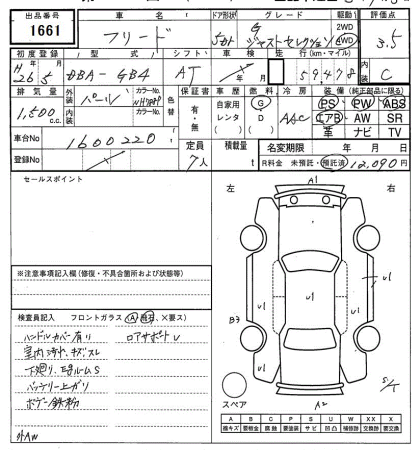 出品番号
1661
車名
フリード
ドア形状
5ドア
グレード
G
ジャストセレクション
駆動
2WD
4WD
評価点
3.5
C
初度登録
H 26.5
型式
DBA-GB4
シフト
AT
車検
走行(km・マイル)
59,478
排気量
1,500 c.c.
外装
パール
カラーNo.
NH788P
内装
カラーNo.
色替
保証書
有・無
車歴
自家用
レンタ
燃料
G
D
冷房
AAC
装備(純正部品に限る)
PS PW ABS
エアB AW SR
革 ナビ TV
車台No
1600220
登録No
定員
7人
積載量
名変期限 年 月 日
R料金 未預託・預託済 12,090円
セールスポイント
※注意事項記入欄(修復・不具合箇所および状態等)
検査員記入 フロントガラス(A、飛石、X要ス)
ハンドルカバー有り
ロアサポートV
室内汚れ、キズスレ
下廻り、E/gルームS
バッテリー上ガリ
ボデー鉄粉
外AW
左
右
A1
U1
U1
U1
U1
B3
A2
スペア
A B C P S U W X XX
線キズ 要板金 腐蝕 要塗装 サビ 凹凸 補修跡 交換跡 要交換